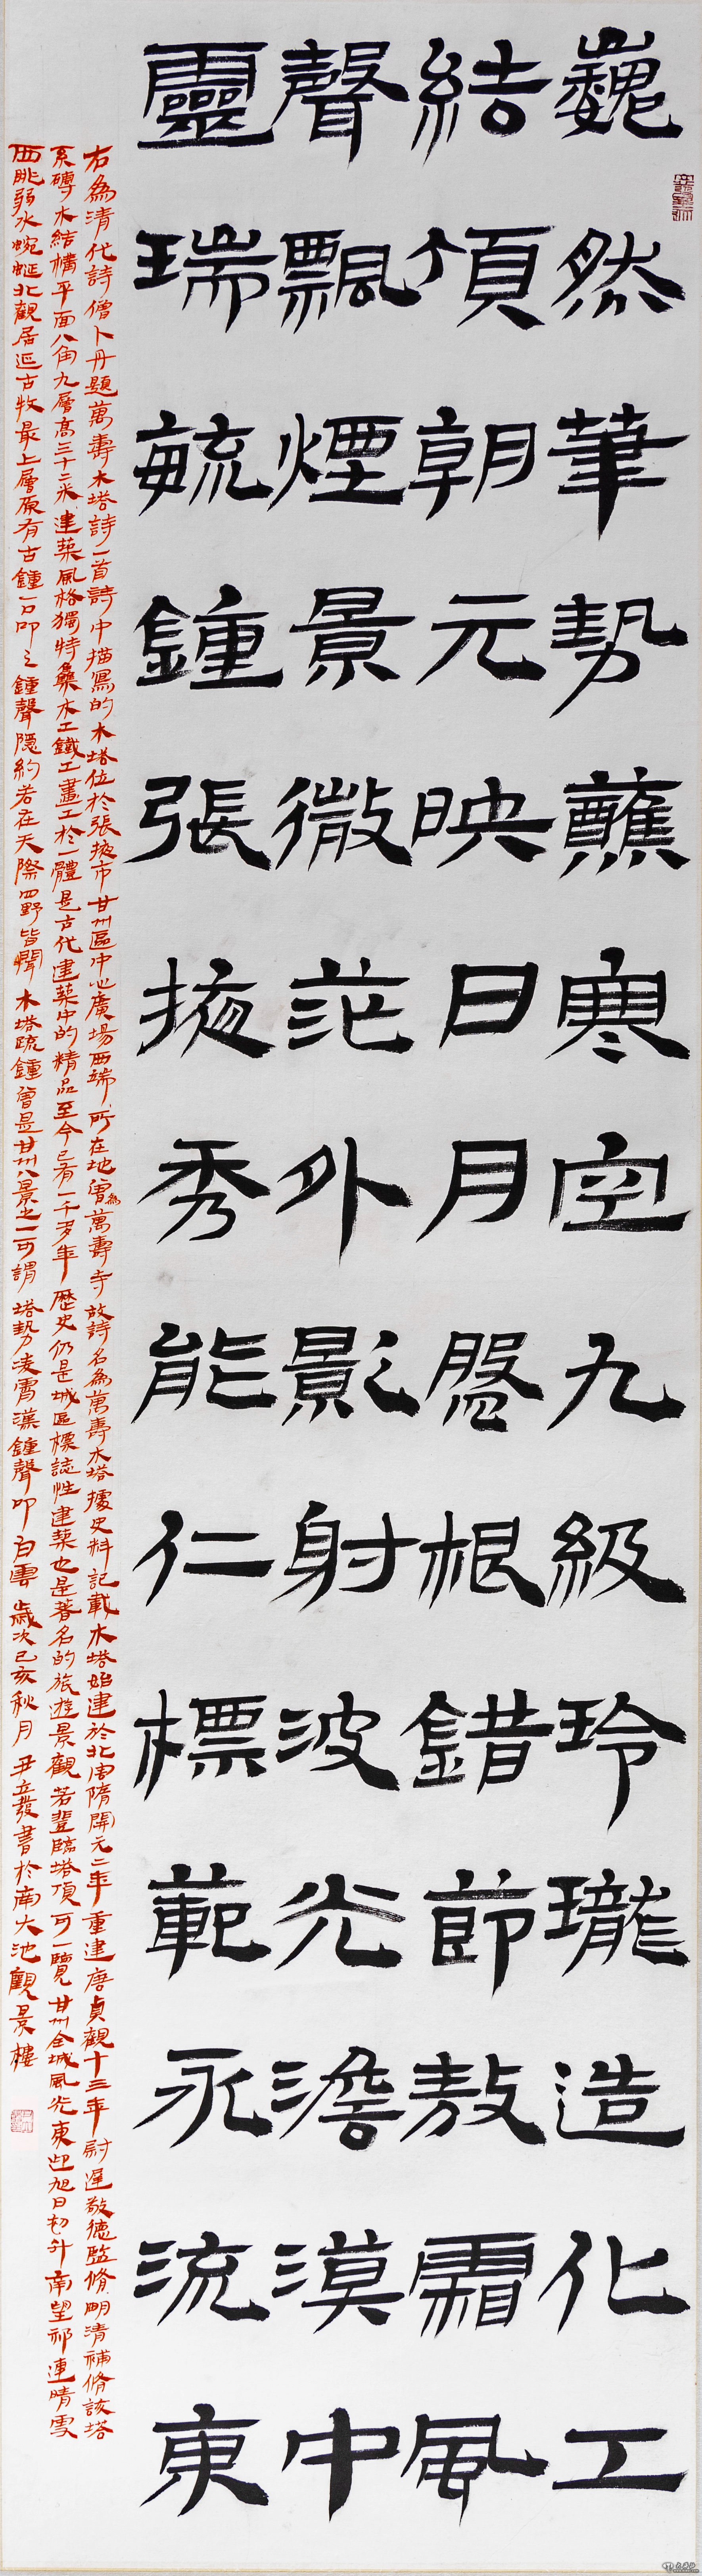 巍然筆勢蘸寒空九級玲瓏造化工
結頂朝元映日月盤根錯節敖霜風
聲飄煙景微茫外影射波光澹漠中
靈瑞毓鍾張掖秀能仁標範永流東
右為清代詩僧卜丹題萬壽木塔詩一首詩中描寫的木塔位於張掖市甘州區中心廣場西端所在地曾為萬壽寺故詩名為萬壽木塔據史料記載木塔始建於北周隋開元二年重建唐貞觀十三年尉遲敬德監脩明清補脩該塔
系磚木結構平面八角九層高三十二米建築風格獨特集木工鐵工畫工於一體是古代建築中的精品至今已有一千多年歷史仍是城區標誌性建築也是著名的旅遊景觀若登臨塔頂可一覽甘州全城風光東迎旭日初升南望祁連晴雪
西眺弱水蜿蜒北觀居延古牧最上層原有古鍾一口叩之鍾聲隱約若在天際四野皆聞木塔疏鍾曾是甘州八景之一可謂塔勢凌霄漢鍾聲叩白雲歲次己亥秋月尹立發書於南大池觀景樓